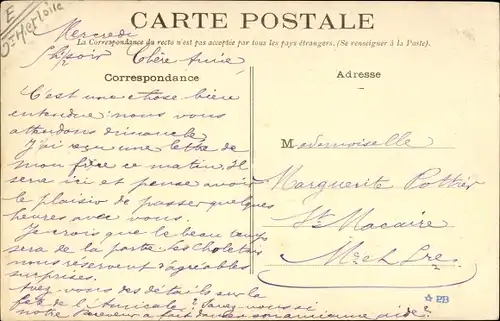 E
CARTE POSTALE
La Correspondance du recto n'est pas acceptée par tous les pays étrangers. (Se renseigner à la Poste).
Mercredi
Chère Amie,
Correspondance
Adresse
C'est une chose bien
entendue: nous vous
attendons dimanche.
J'ai reçu une lettre de
mon frère ce matin. Il
sera ici et pense avoir
le plaisir de passer quelques
heures avec vous.
Je crois que le beau temps
sera de la partie. Les Choletais
nous réservent d'agréables
surprises.
Avez vous des détails sur la
fête de l'Amicale? Savez-vous si
notre Receveur a fait dans
Mademoiselle
Marguerite
St Macaire
M. et Lre
EB